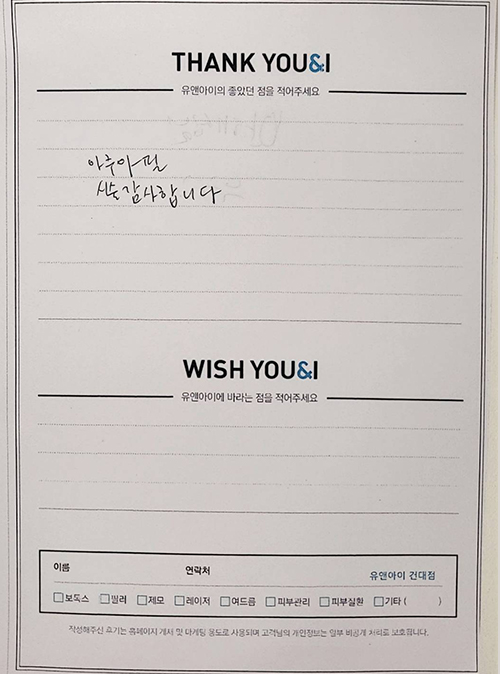 THANK YOU&I
유앤아이의 좋았던 점을 적어주세요
아쿠아필
시술감사합니다
WISH YOU&I
유앤아이에 바라는 점을 적어주세요
이름 연락처 유앤아이 건대점
보톡스 필러 제모 레이저 여드름 피부관리 피부질환 기타 ( )
작성해주신 후기는 홈페이지 게시 및 마케팅 용도로 사용되며 고객님의 개인정보는 일부 비공개 처리로 보호됩니다.